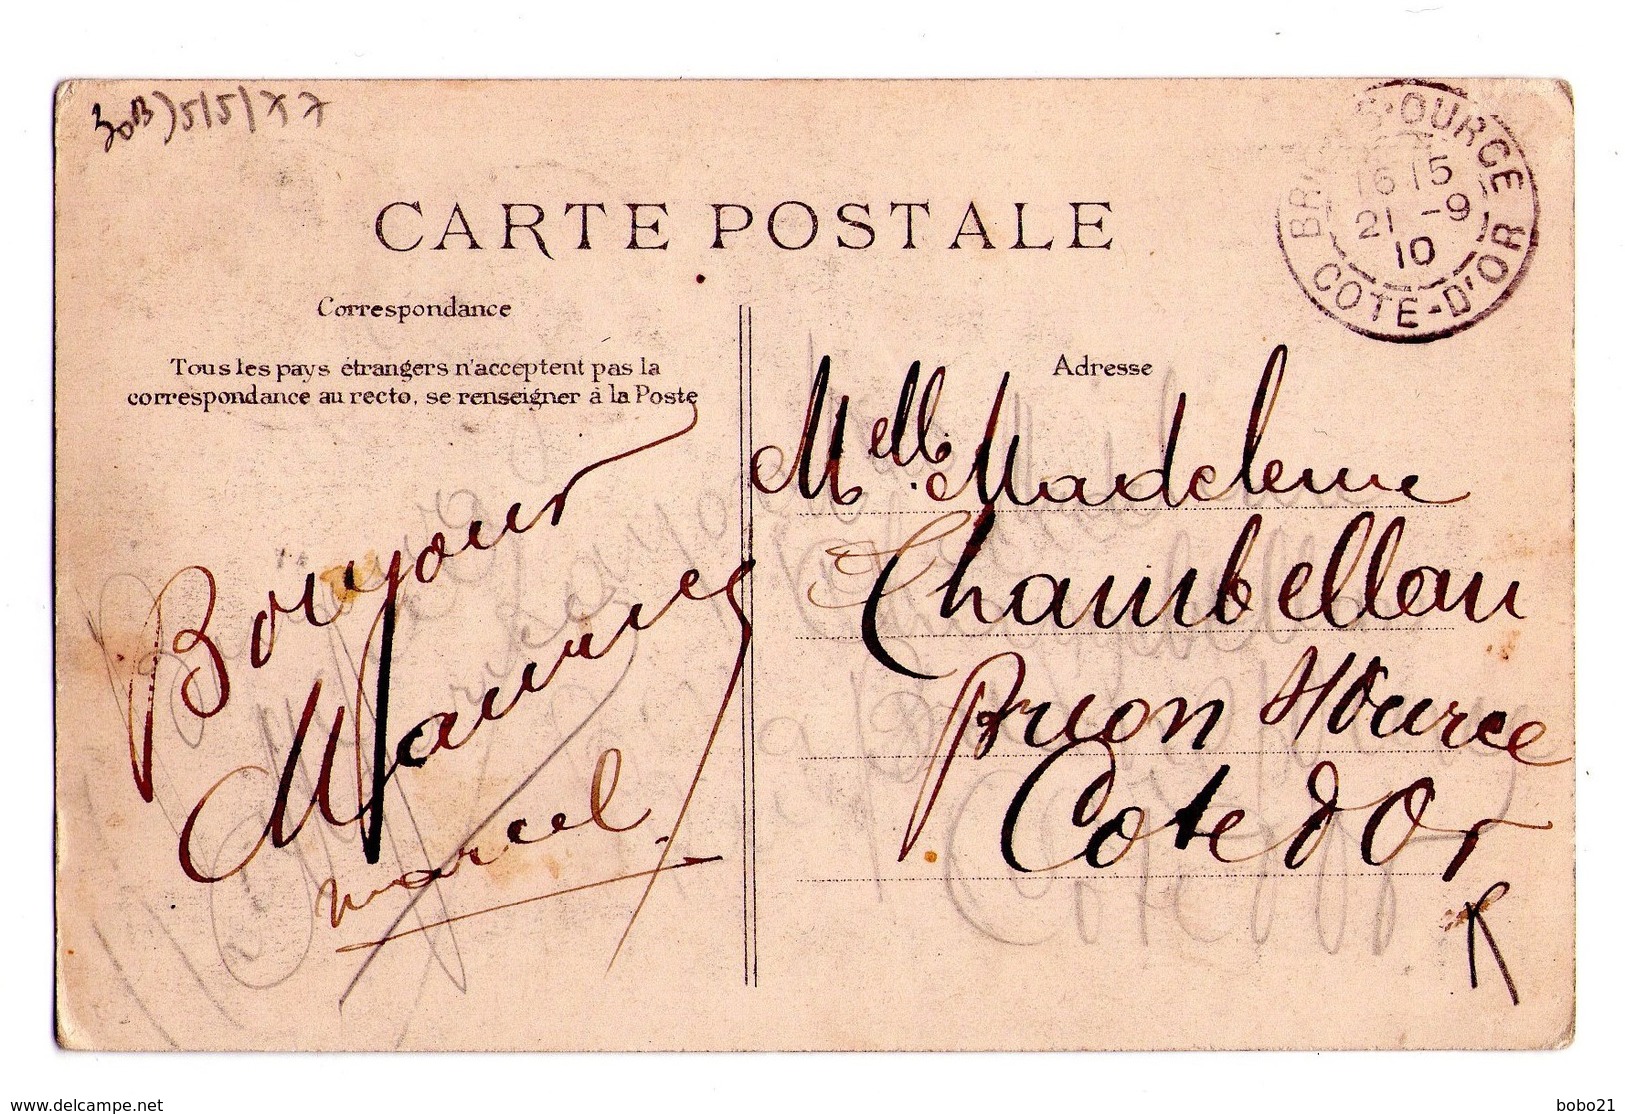 5/5/77
BRION-S-OURCE
16 15
21 -9
10
COTE-D'OR
CARTE POSTALE
Correspondance
Tous les pays étrangers n'acceptent pas la
correspondance au recto, se renseigner à la Poste
Adresse
Bonjour
Marcel
Melle Madeleine
Chambellan
Brion s/Ource
Cote d'Or
www.delcampe.net
bobo21